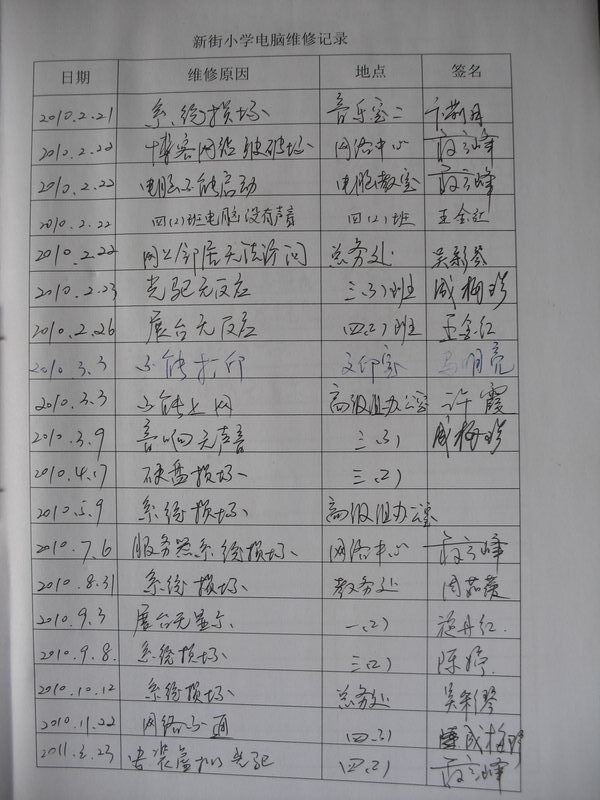 新街小学电脑维修记录
日期 维修原因 地点 签名
2010.2.21 系统损坏 音乐室二
2010.2.22 博客网站被破坏 网络中心
2010.2.22 电脑不能启动 电脑教室
2010.2.22 四(2)班电脑没有声音 四(2)班 王金红
2010.2.22 网上邻居无法访问 总务处 吴彩琴
2010.2.23 光驱无反应 三(3)班 成梅珍
2010.2.26 展台无反应 四(2)班 王金红
2010.3.3 不能打印 文印室 马明亮
2010.3.3 不能上网 高级组办公室 许霞
2010.3.9 音响无声音 三(3) 成梅珍
2010.4.17 硬盘损坏 三(2)
2010.5.9 系统损坏 高级组办公室
2010.7.6 服务器系统损坏 网络中心
2010.8.31 系统损坏 教务处 周茹葵
2010.9.3 展台无显示 一(2) 施丹红
2010.9.8 系统损坏 三(2) 陈婷
2010.10.12 系统损坏 总务处 吴彩琴
2010.11.22 网络不通 四(3) 成梅珍
2011.2.23 安装虚拟光驱 四(2)